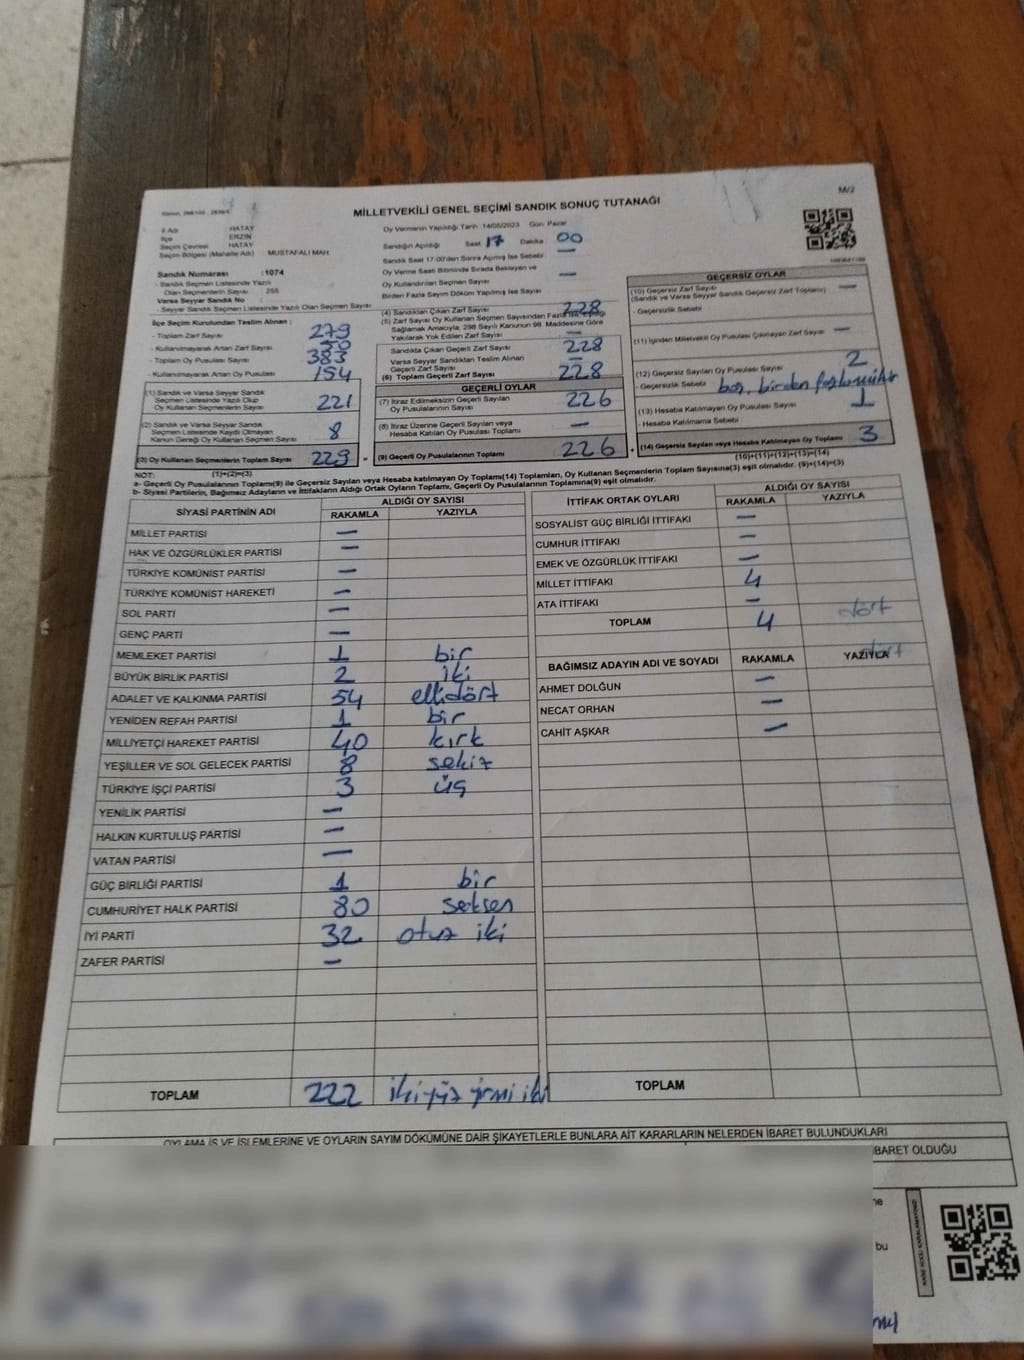 M/2
MİLLETVEKİLİ GENEL SEÇİMİ SANDIK SONUÇ TUTANAĞI
İl Adı HATAY
İlçe ERZİN
Seçim Çevresi HATAY
Seçim Bölgesi (Mahalle Adı) MUSTAFALI MAH
Sandık Numarası :1074
- Sandık Seçmen Listesinde Yazılı
Olan Seçmenlerin Sayısı : 255
Varsa Seyyar Sandık No :
- Seyyar Sandık Seçmen Listesinde Yazılı Olan Seçmen Sayısı
İlçe Seçim Kurulundan Teslim Alınan ;
- Toplam Zarf Sayısı 279
- Kullanılmayarak Artan Zarf Sayısı 50
- Toplam Oy Pusulası Sayısı 383
- Kullanılmayarak Artan Oy Pusulası 154
(1) Sandık ve Varsa Seyyar Sandık
Seçmen Listesinde Yazılı Olup
Oy Kullanan Seçmenlerin Sayısı 221
(2) Sandık ve Varsa Seyyar Sandık
Seçmen Listesinde Kayıtlı Olmayan
Kanun Gereği Oy Kullanan Seçmen Sayısı 8
(3) Oy Kullanan Seçmenlerin Toplam Sayısı 229
Oy Vermenin Yapıldığı Tarih :14/05/2023 Gün: Pazar
Sandığın Açıldığı Saat 17 Dakika 00
Sandık Saat 17.00'den Sonra Açmış İse Sebebi —
Oy Verme Saati Bitiminde Sırada Bekleyen ve
Oy Kullandırılan Seçmen Sayısı —
Birden Fazla Sayım Döküm Yapılmış İse Sayısı
(4) Sandıktan Çıkan Zarf Sayısı 228
(5) Zarf Sayısı Oy Kullanan Seçmen Sayısından Fazla İse Eşitliği
Sağlamak Amacıyla, 298 Sayılı Kanunun 98. Maddesine Göre
Yakılarak Yok Edilen Zarf Sayısı —
Sandıkta Çıkan Geçerli Zarf Sayısı 228
Varsa Seyyar Sandıktan Teslim Alınan
Geçerli Zarf Sayısı —
(6) Toplam Geçerli Zarf Sayısı 228
GEÇERLİ OYLAR
(7) İtiraz Edilmeksizin Geçerli Sayılan
Oy Pusulalarının Sayısı 226
(8) İtiraz Üzerine Geçerli Sayılan veya
Hesaba Katılan Oy Pusulası Toplamı —
= (9) Geçerli Oy Pusulalarının Toplamı 226
GEÇERSİZ OYLAR
(10) Geçersiz Zarf Sayısı —
(Sandık ve Varsa Seyyar Sandık Geçersiz Zarf Toplamı)
- Geçersizlik Sebebi
(11) İçinden Milletvekili Oy Pusulası Çıkmayan Zarf Sayısı —
(12) Geçersiz Sayılan Oy Pusulası Sayısı 2
- Geçersizlik Sebebi boş, birden
(13) Hesaba Katılmayan Oy Pusulası Sayısı 1
- Hesaba Katılmama Sebebi
+ (14) Geçersiz Sayılan veya Hesaba Katılmayan Oy Toplamı 3
(10)+(11)+(12)+(13)=(14)
NOT: (1)+(2)=(3)
a- Geçerli Oy Pusulalarının Toplamı(9) ile Geçersiz Sayılan veya Hesaba katılmayan Oy Toplamı(14) Toplamları, Oy Kullanan Seçmenlerin Toplam Sayısına(3) eşit olmalıdır. (9)+(14)=(3)
b- Siyasi Partilerin, Bağımsız Adayların ve İttifakların Aldığı Ortak Oyların Toplamı, Geçerli Oy Pusulalarının Toplamına(9) eşit olmalıdır.
SİYASİ PARTİNİN ADI ALDIĞI OY SAYISI
RAKAMLA YAZIYLA
MİLLET PARTİSİ —
HAK VE ÖZGÜRLÜKLER PARTİSİ —
TÜRKİYE KOMÜNİST PARTİSİ —
TÜRKİYE KOMÜNİST HAREKETİ —
SOL PARTİ —
GENÇ PARTİ —
MEMLEKET PARTİSİ 1 bir
BÜYÜK BİRLİK PARTİSİ 2 iki
ADALET VE KALKINMA PARTİSİ 54 ellidört
YENİDEN REFAH PARTİSİ 1 bir
MİLLİYETÇİ HAREKET PARTİSİ 40 kırk
YEŞİLLER VE SOL GELECEK PARTİSİ 8 sekiz
TÜRKİYE İŞÇİ PARTİSİ 3 üç
YENİLİK PARTİSİ —
HALKIN KURTULUŞ PARTİSİ —
VATAN PARTİSİ —
GÜÇ BİRLİĞİ PARTİSİ 1 bir
CUMHURİYET HALK PARTİSİ 80 seksen
İYİ PARTİ 32 otuz iki
ZAFER PARTİSİ —
TOPLAM 222 ikiyüz yirmi iki
İTTİFAK ORTAK OYLARI ALDIĞI OY SAYISI
RAKAMLA YAZIYLA
SOSYALİST GÜÇ BİRLİĞİ İTTİFAKI —
CUMHUR İTTİFAKI —
EMEK VE ÖZGÜRLÜK İTTİFAKI —
MİLLET İTTİFAKI 4
ATA İTTİFAKI —
TOPLAM 4 dört
BAĞIMSIZ ADAYIN ADI VE SOYADI RAKAMLA YAZIYLA
AHMET DOLĞUN —
NECAT ORHAN —
CAHİT AŞKAR —
TOPLAM
OYLAMA İŞ VE İŞLEMLERİNE VE OYLARIN SAYIM DÖKÜMÜNE DAİR ŞİKAYETLERLE BUNLARA AİT KARARLARIN NELERDEN İBARET BULUNDUKLARI
İBARET OLDUĞU
ne
bu
KARE KODU KARALAMAYINIZ